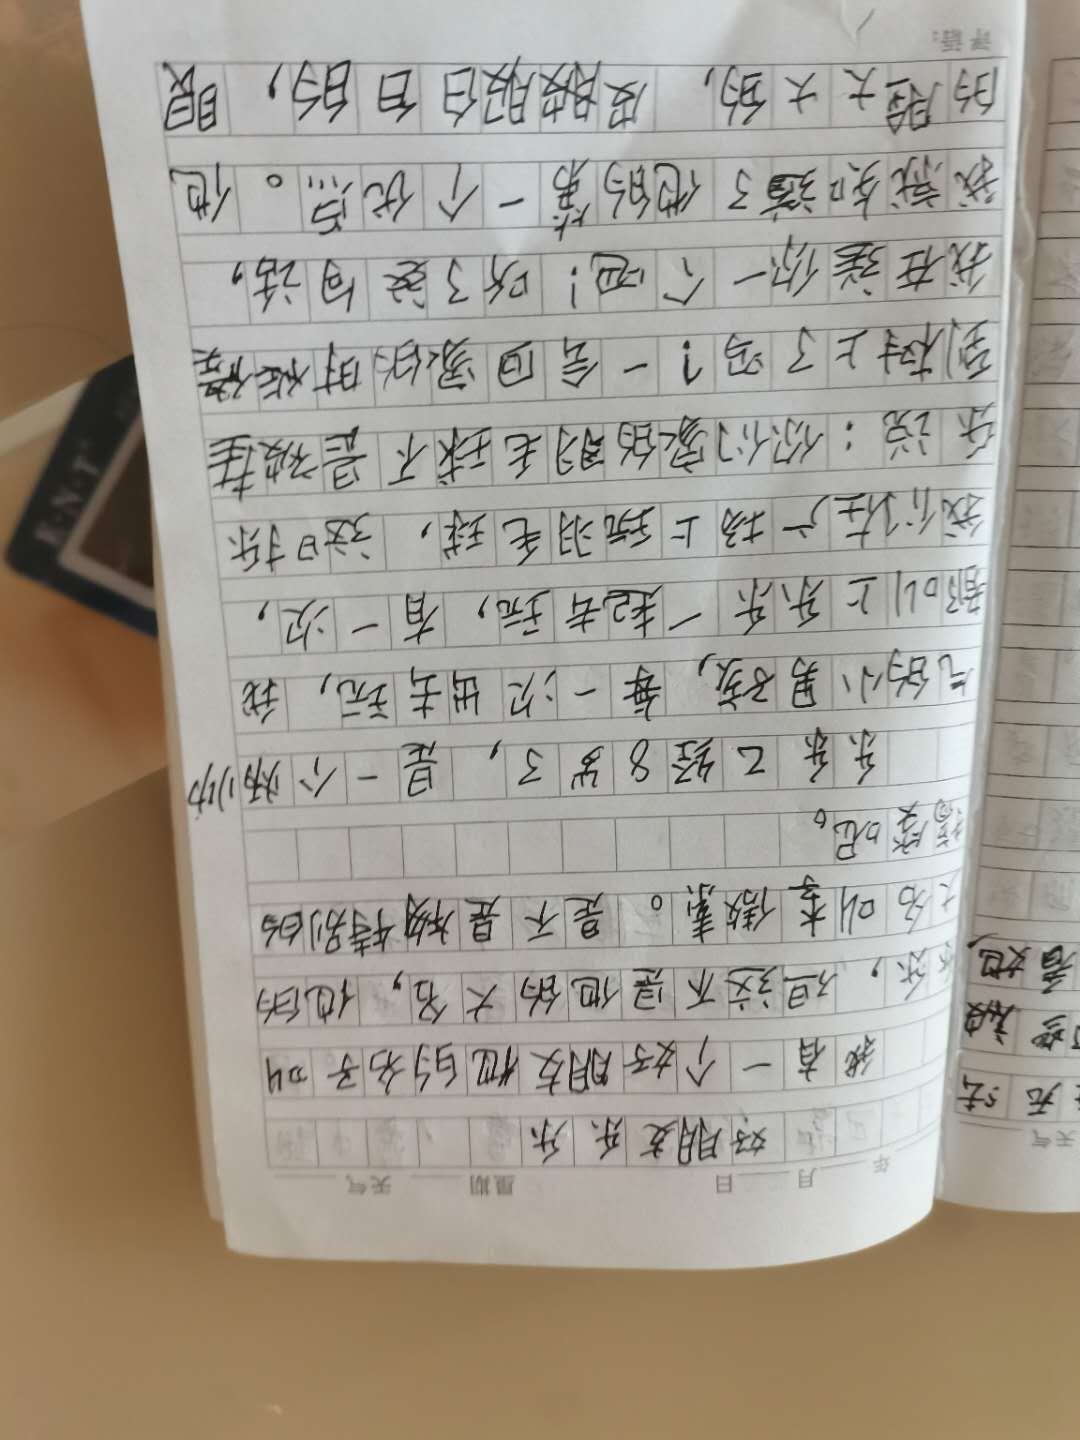 年 月 日 星期 天气
好朋友乐乐
我有一个好朋友他的名子叫
乐乐,但这不是他的大名,他的
大名叫李微素。是不是很特别的
搞笑呢。
乐乐已经8岁了,是一个娇小
气的小男孩,每一次出去玩,我
都叫上乐乐一起去玩,有一次,
我们在广场上玩羽毛球,这时乐
乐说:你们家的羽毛球不是被挂
到树上了吗?一会回家的时候
我在送你一个吧!听了这句话,
我就知道了他的第一个优点。他
的脸大大的,皮肤白白的,眼
评语:
天气
无法
被
看她